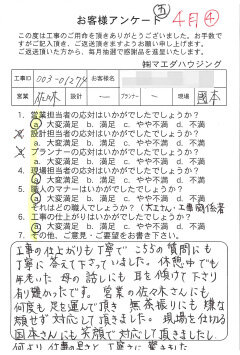 お客様アンケート
五
4月④
この度は工事のご用命を頂きありがとうございました。お手数で
すがご記入頂き、ご返送頂きますようお願い申し上げます。
ご返送頂いた方から、毎月抽選で感謝品を進呈いたします。
㈱マエダハウジング
工事ID 003-01279 お客様名
営業 佐々木 設計 プランナー 現場 國本
1. 営業担当者の応対はいかがでしたでしょうか?
a. 大変満足 b. 満足 c. やや不満 d. 不満
2. 設計担当者の応対はいかがでしたでしょうか?
a. 大変満足 b. 満足 c. やや不満 d. 不満
3. プランナーの応対はいかがでしたでしょうか?
a. 大変満足 b. 満足 c. やや不満 d. 不満
4. 現場担当者の応対はいかがでしたでしょうか?
a. 大変満足 b. 満足 c. やや不満 d. 不満
5. 職人のマナーはいかがでしたでしょうか?
a. 大変満足 b. 満足 c. やや不満 d. 不満
それはどの職人でしょうか?
6. 工事の仕上がりはいかがでしたでしょうか?
a. 大変満足 b. 満足 c. やや不満 d. 不満
7. その他、ご意見・ご要望をお書き下さい。
工事の仕上がりも丁寧で こちらの質問にも
丁寧に答えて下さっていました。休憩中でも
年老いた 母の話しにも 耳を傾けて下さり
有り難かったです。営業の佐々木さんにも
何度も足を運んで頂き 無茶振りにも 嫌な
顔せず 対応して頂きました。現場を仕切る
國本さんにも 笑顔で 対応して頂きましたし